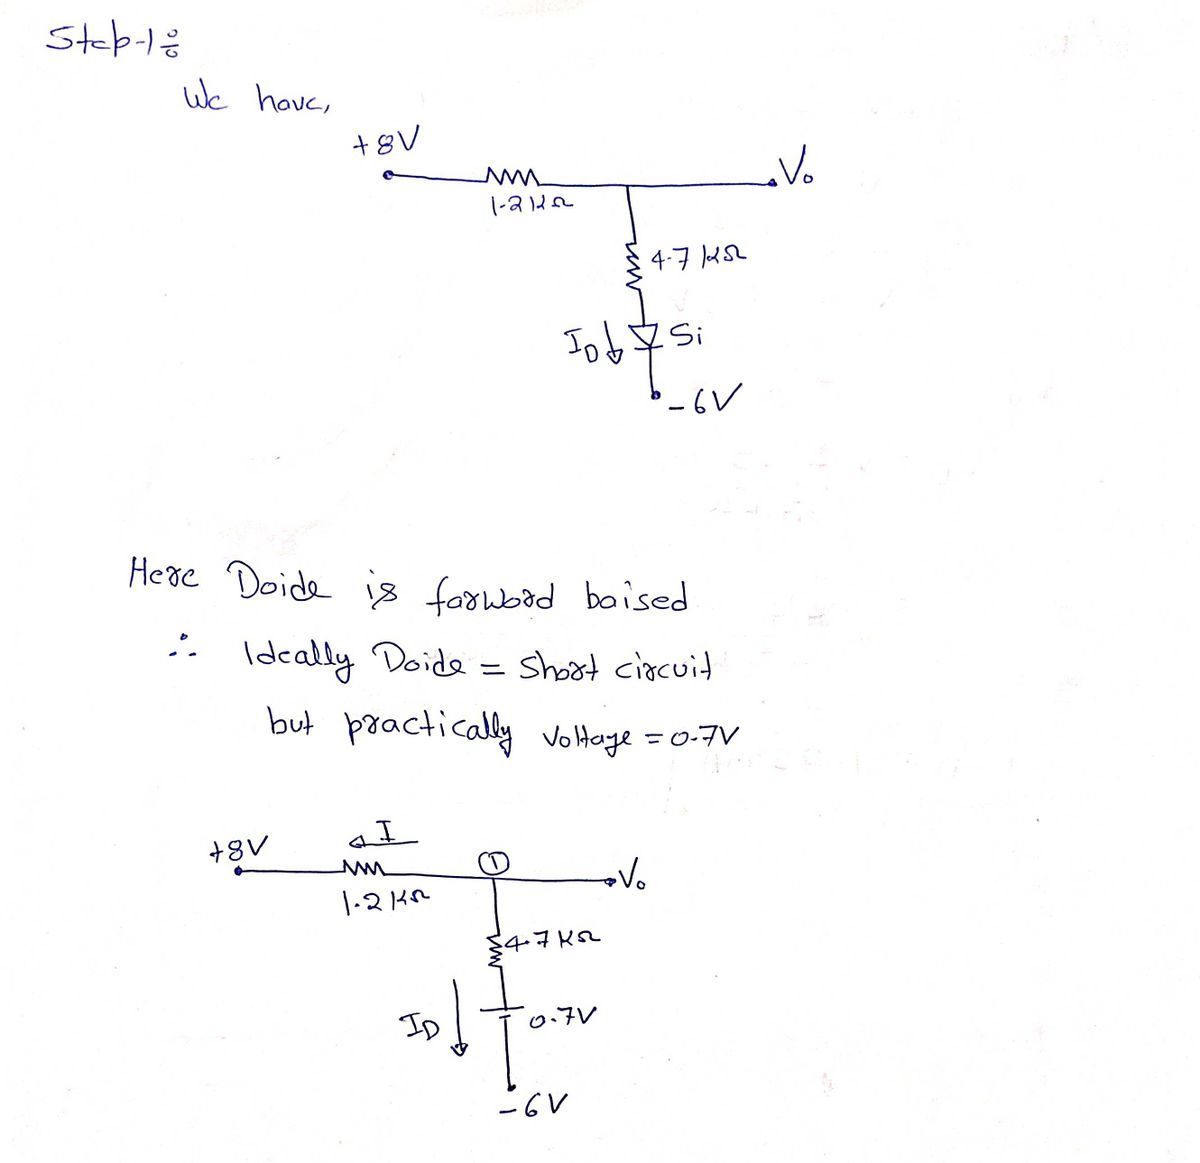 Step-1:
We have,
+8V
Vo
1.2 KΩ
4.7 KΩ
ID
Si
-6V
Here Doide is forword baised
∴ Ideally Doide = Short circuit
but practically Voltage = 0.7V
I
+8V
1
Vo
1.2 KΩ
4.7 KΩ
ID
0.7V
-6V